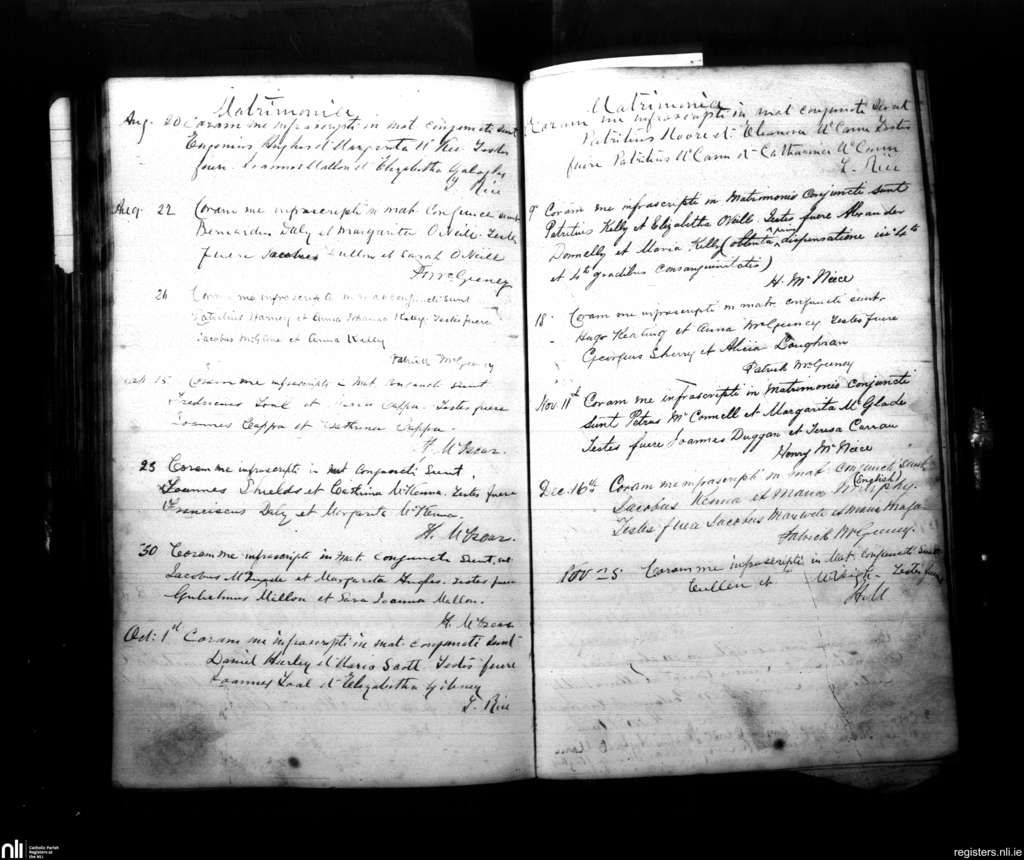 Matrimonia
Aug. 20 Coram me infrascripti in mat. conjuncti sunt
Eugenius Hughes et Margarita Mc Kee. Testes
fuere Joannes Mallon et Elizabetha
Rice
Aug. 22 Coram me infrascripti in mat. conjuncti sunt
Bernardus Daly et Margarita O'Neill. Testes
fuere Jacobus Cullen et Sarah O'Neill
P. McGeeney
26 Coram me infrascripti in mat. conjuncti sunt
Patritius et Anna Johanna Kelly. Testes fuere
Jacobus et Anna Kelly
Patrick McGeeney
15 Coram me infrascripti in Mat. conjuncti sunt
Fredericus Loal et Maria Cappa. Testes fuere
Joannes Cappa et Cappa.
23 Coram me infrascripti in Mat conjuncti sunt.
Joannes Shields et McKenna. Testes fuere
Franciscus Daly et Margarita McKenna.
30 Coram me infrascripti in Mat. conjuncti sunt,
Jacobus et Margarita Hughes. Testes fuere
Gulielmus Millon et Sara Joanna Mallon.
Oct: 1st Coram me infrascripti in mat. conjuncti sunt
Daniel Hurley et Maria Scott Testes fuere
Joannes Loal et Elizabetha Gibney
Rice
Matrimonia
Coram me infrascripti in mat conjuncti sunt
Patritius Moore et Eleanora McCann Testes
fuere Patritius McCann et Catharina McCann
Rice
9 Coram me infrascripti in Matrimonio Conjuncti sunt
Patritius Kelly et Elizabetha O'Neill. Testes fuere Alexander
Donnelly et Maria Kelly (obtenta prius dispensatione in 4to
et 4to gradibus consanguinitatis)
H. McNeice
18. Coram me infrascripti in matr. conjuncti sunt
Hugo Keating et Anna McGeeney Testes fuere
Georgius Sherry et Alicia Loughran
Patrick McGeeney
Nov. 11th Coram me infrascripti in Matrimonio conjuncti
sunt Petrus McConnell et Margarita McGlade
Testes fuere Joannes Duggan et Teresa Curran
Henry McNeice
Dec. 16th Coram me infrascripti in mat. conjuncti sunt
(English)
Jacobus Kenna et Maria Murphy.
Testes fuere Jacobus et Maria
Patrick McGeeney.
Nov 25. Coram me infrascripti in Mat. conjuncti sunt
Cullen et Testes fuere
nli
Catholic Parish
Registers at
the NLI
registers.nli.ie